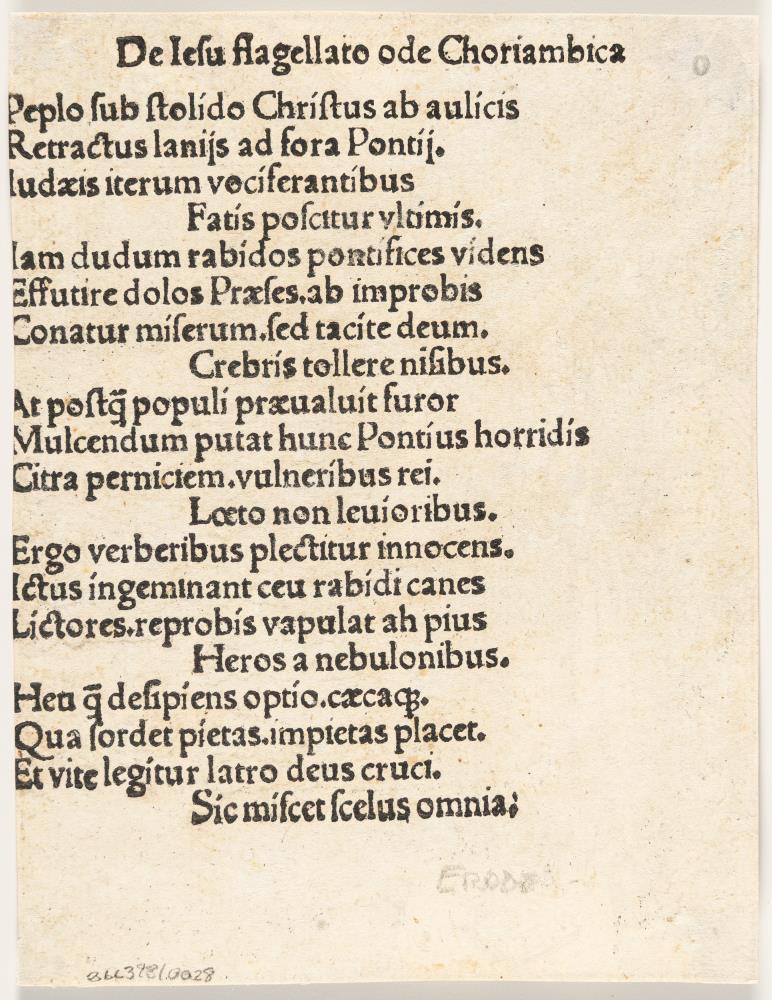 De Iesu flagellato ode Choriambica
Peplo sub stolido Christus ab aulicis
Retractus lanijs ad fora Pontij.
Iudæis iterum vociferantibus
Fatis poscitur vltimis.
Iam dudum rabidos pontifices videns
Effutire dolos Præses.ab improbis
Conatur miserum.sed tacite deum.
Crebris tollere nisibus.
At postq̄ populi præualuit furor
Mulcendum putat hunc Pontius horridis
Citra perniciem.vulneribus rei.
Lœto non leuioribus.
Ergo verberibus plectitur innocens.
Ictus ingeminant ceu rabidi canes
Lictores.reprobis vapulat ah pius
Heros a nebulonibus.
Heu q̄ desipiens optio.cæcaqꝫ.
Qua sordet pietas.impietas placet.
Et vite legitur latro deus cruci.
Sic miscet scelus omnia;